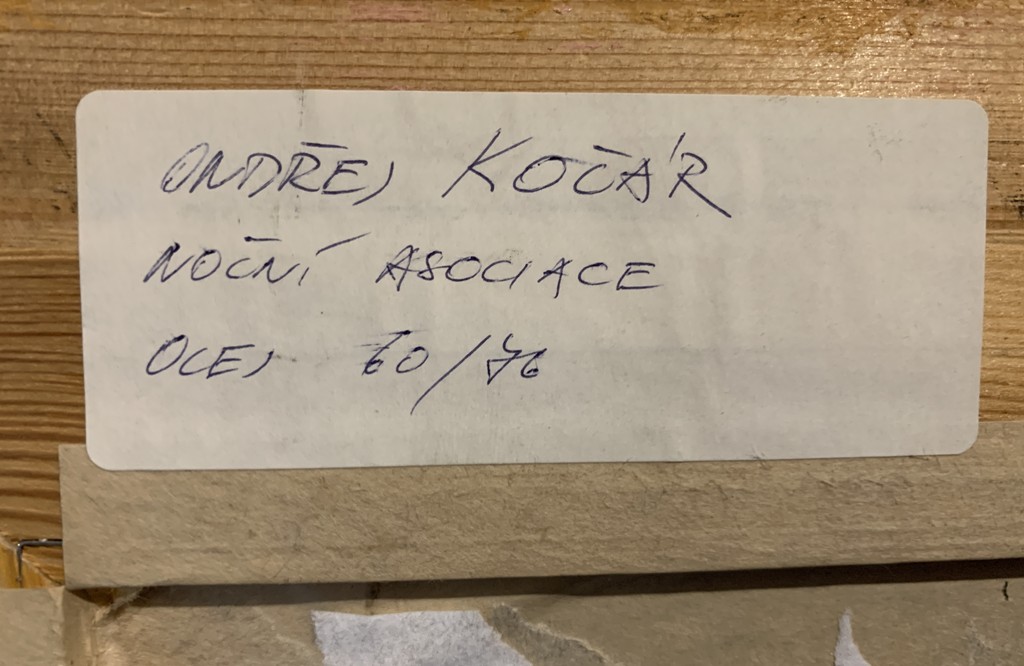 ONDŘEJ KOČÁR
NOČNÍ ASOCIACE
OLEJ 60/76